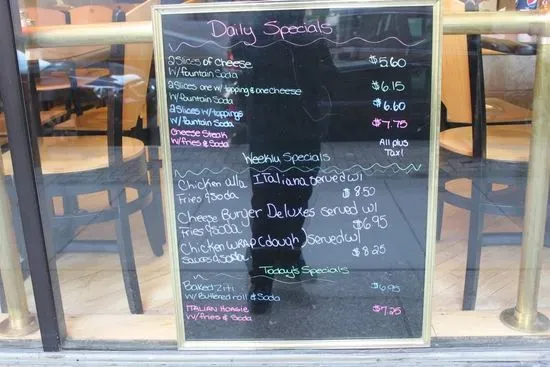 Daily Specials
2 Slices of Cheese $5.60
w/ fountain Soda
2 Slices one w/ topping & one cheese $6.15
w/ fountain Soda
2 Slices w/ toppings $6.60
w/ fountain Soda
Cheese Steak $7.75
w/ fries & Soda
All plus
Tax!
Weekly Specials
Chicken alla Italiana served w/
Fries & soda $8.50
Cheese Burger Deluxes served w/
Fries & soda $6.95
Chicken wrap (dough) served w/
sauces & soda $8.25
Today's Specials
Baked Ziti $6.95
w/ Buttered roll & Soda
ITALIAN HOAGIE $7.25
w/ fries & Soda